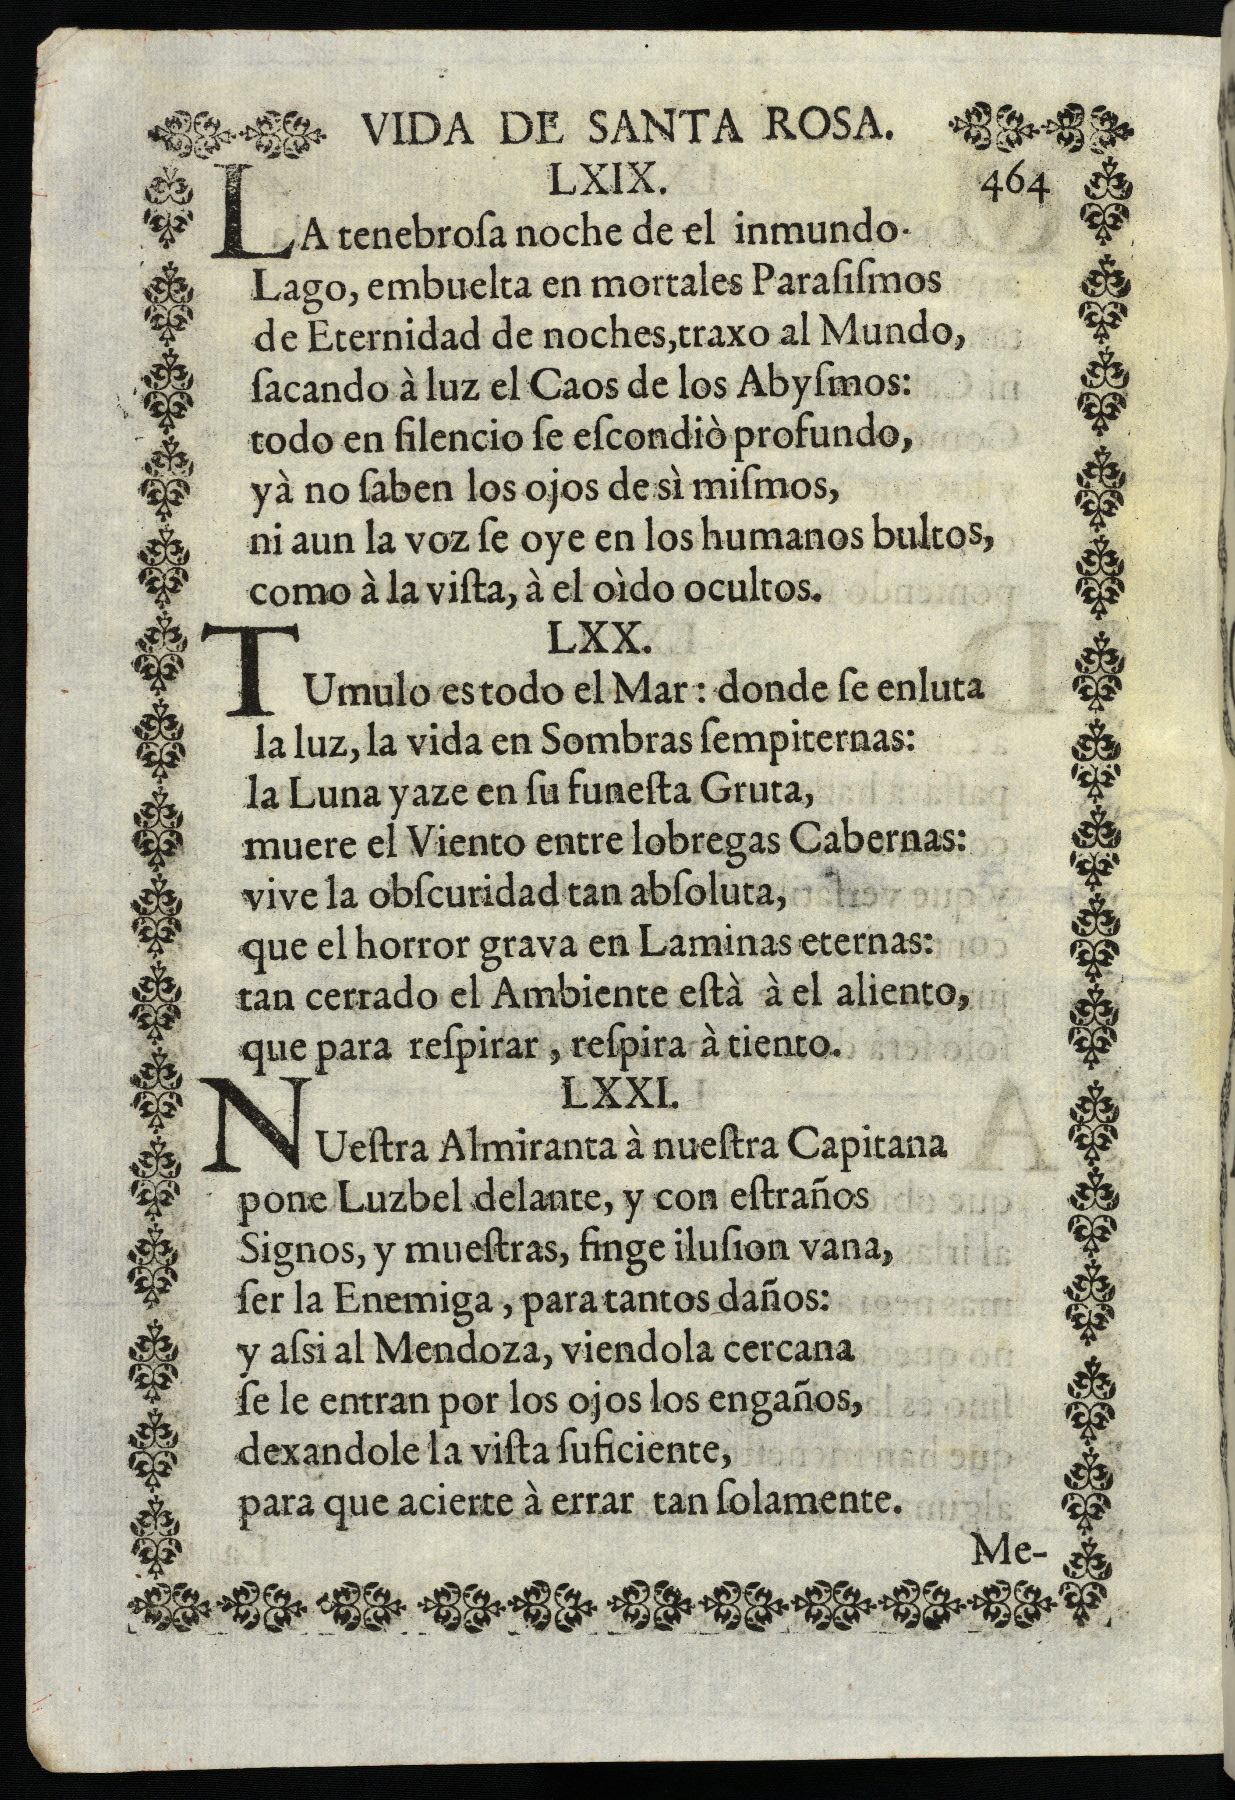 VIDA DE SANTA ROSA.
LXIX. 464
LA tenebroſa noche de el inmundo.
Lago, embuelta en mortales Paraſiſmos
de Eternidad de noches,traxo al Mundo,
ſacando à luz el Caos de los Abyſmos:
todo en ſilencio ſe eſcondiò profundo,
yà no ſaben los ojos de sì miſmos,
ni aun la voz ſe oye en los humanos bultos,
como à la viſta, à el oìdo ocultos.
LXX.
TUmulo es todo el Mar: donde ſe enluta
la luz, la vida en Sombras ſempiternas:
la Luna yaze en ſu funeſta Gruta,
muere el Viento entre lobregas Cabernas:
vive la obſcuridad tan abſoluta,
que el horror grava en Laminas eternas:
tan cerrado el Ambiente eſtà à el aliento,
que para reſpirar, reſpira à tiento.
LXXI.
NUeſtra Almiranta à nueſtra Capitana
pone Luzbel delante, y con eſtraños
Signos, y mueſtras, finge iluſion vana,
ſer la Enemiga, para tantos daños:
y aſsi al Mendoza, viendola cercana
ſe le entran por los ojos los engaños,
dexandole la viſta ſuficiente,
para que acierte à errar tan ſolamente.
Me-